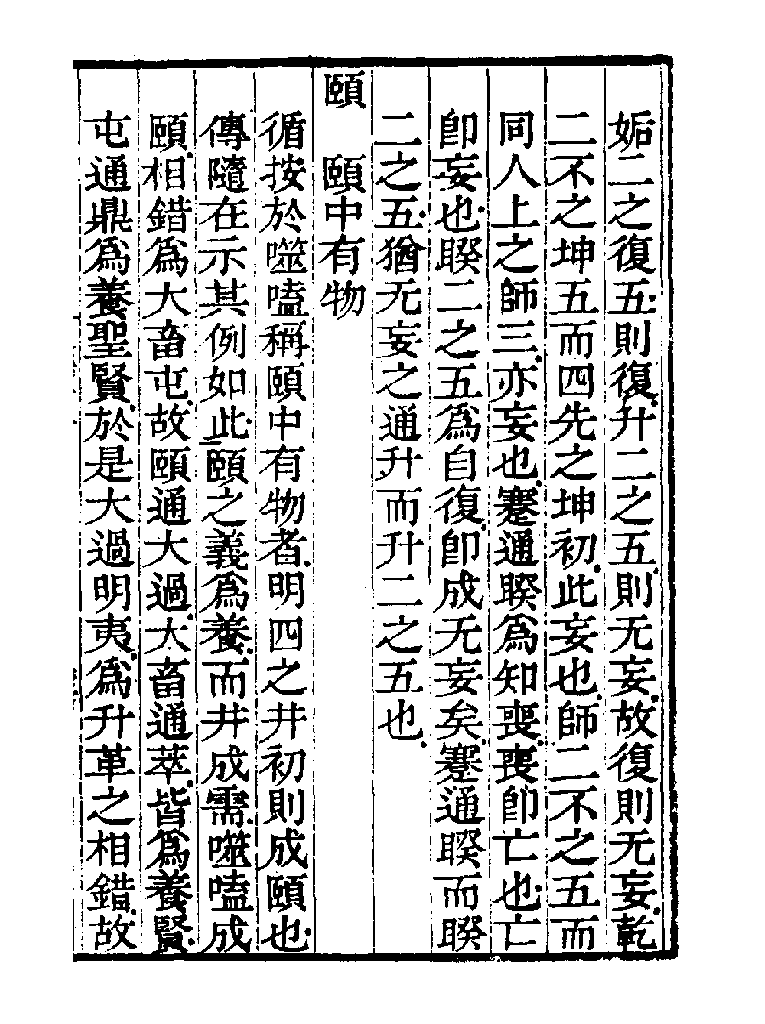 姤二之復五則復升二之五則无妄故復則无妄乾
二不之坤五而四先之坤初此妄也師二不之五而
同人上之師三亦妄也蹇通睽為知喪喪即亡也亡
即妄也睽二之五為自復即成无妄矣蹇通睽而睽
二之五猶无妄之通升而升二之五也
頤　頤中有物
循按於噬嗑稱頤中有物者明四之井初則成頤也
傳隨在示其例如此頤之義為養而井成需噬嗑成
頤相錯為大畜屯故頤通大過大畜通萃皆為養賢
屯通鼎為養聖賢於是大過明夷為升革之相錯故